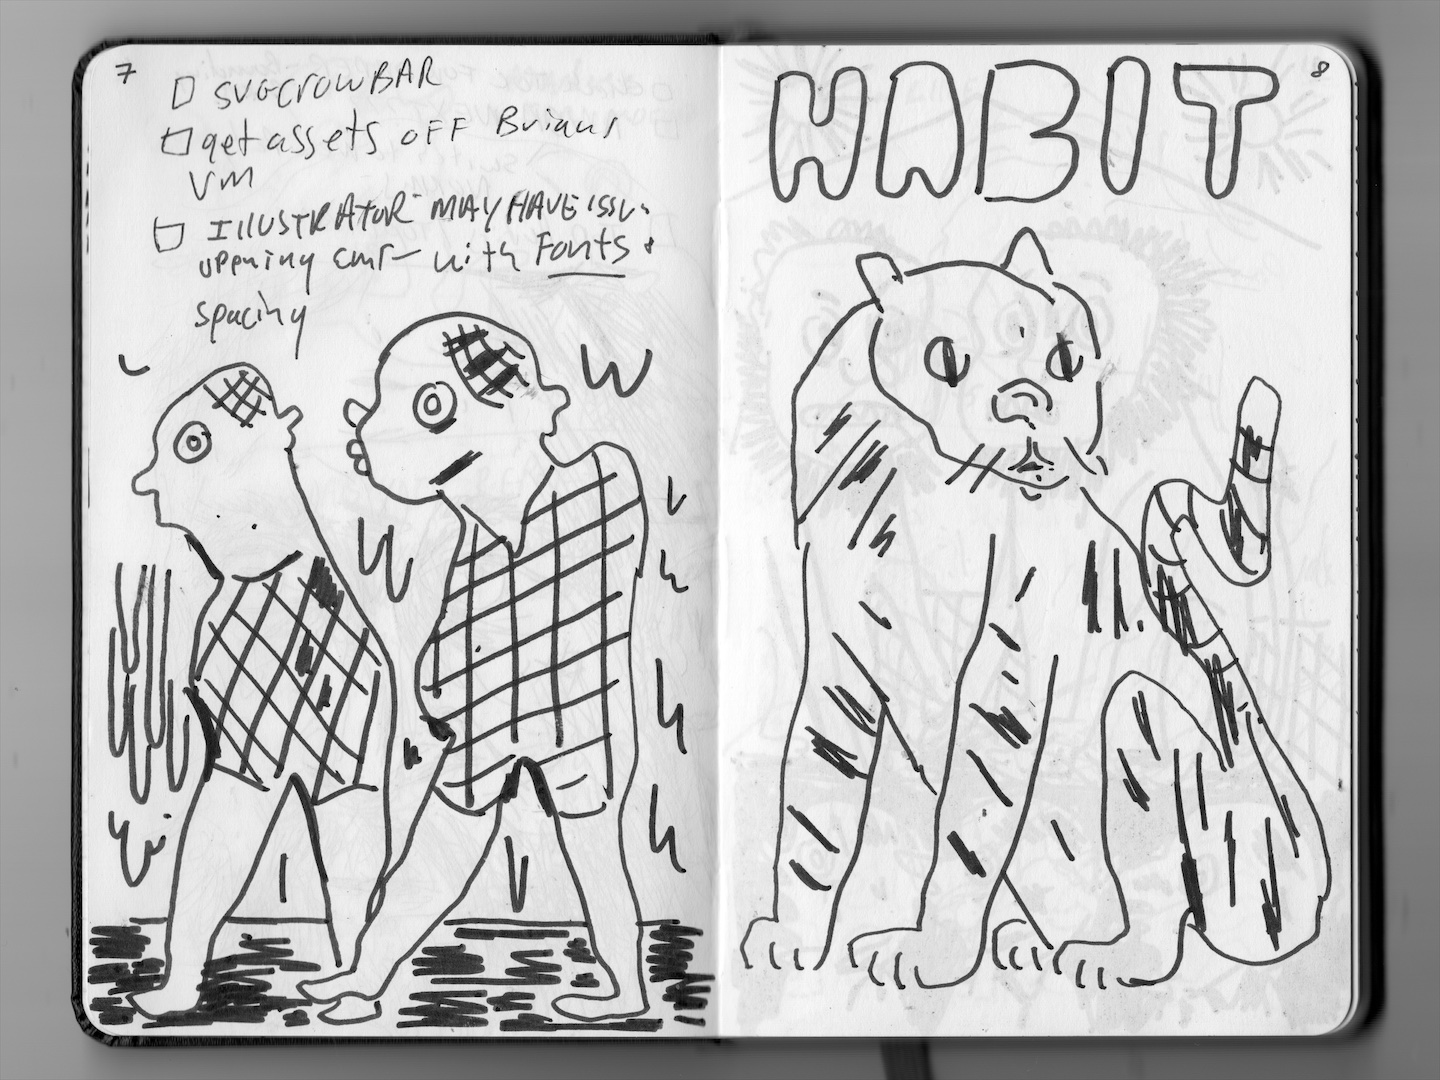 7
SVGCROWBAR
get assets OFF Brians
VM
ILLUSTRATOR MAY HAVE ISSU
opening cmr with Fonts +
spacing
8
HABIT